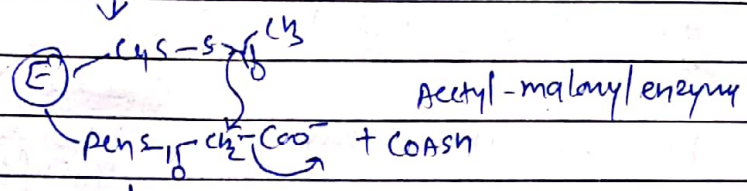 CH3
E Cys-S O
Acetyl-malonyl enzyme
Pen S O CH2-COO- + COASH